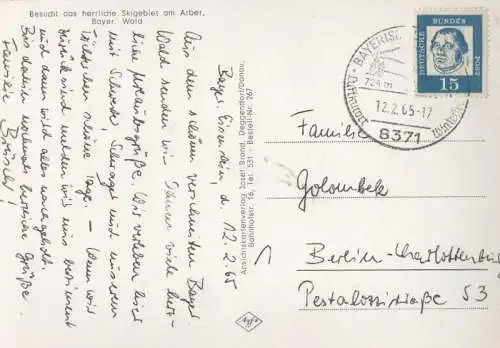 Besucht das herrliche Skigebiet am Arber,
Bayer. Wald
Bayr. Eisenstein, d. 12.2.65
Aus dem schön verschneiten Bayr.
Wald senden wir Ihnen viele herz-
liche Urlaubsgrüße. Wir verleben hier
mit Schwester, Schwager und unserem
Töchterchen schöne Tage. – Wenn wir
zurück sind melden wir uns bestimmt
und dann wird alles nachgeholt.
Bis dahin nochmals herzliche Grüße
Familie
Ansichtskartenverlag Josef Brand, Deggendorf/Donau,
Bahnhofstr. 16, Tel. 531 - Bestell-Nr. 767
Agfa
DEUTSCHE BUNDESPOST
15
BAYERISCH
724 m
12.2.65-17
Luftkurort
8371
Familie
Golombek
Berlin-Charlottenburg
Pestalozzistraße 53